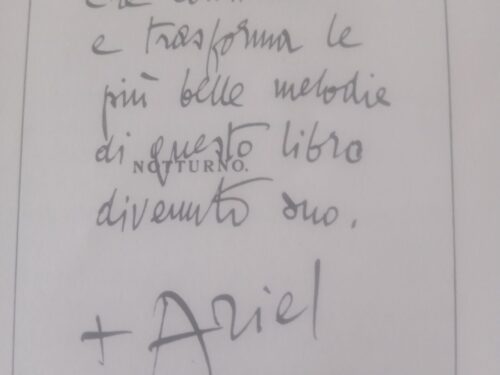 e trasforma le
più belle melodie
di questo libro
NOTTURNO.
divenuto suo.
+ Ariel